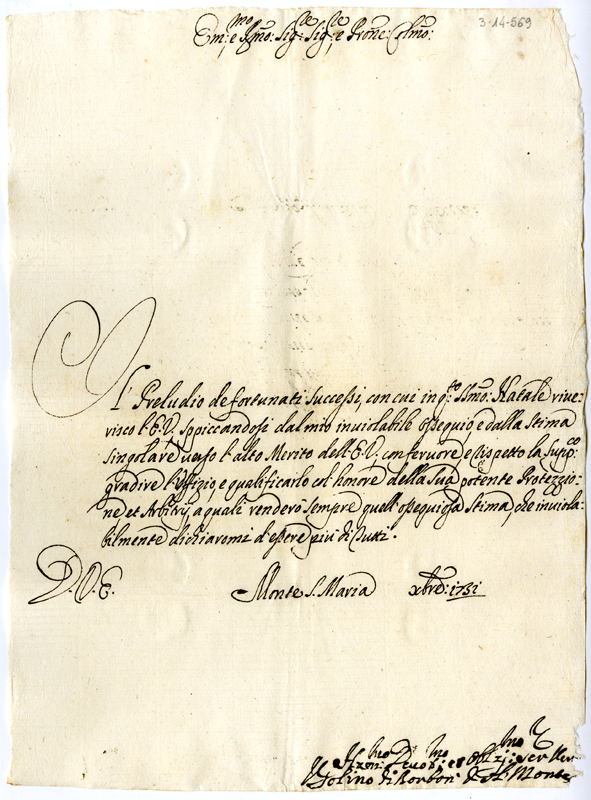 3-14-569
Em:mo e Rmo: Sig:re Sig:re e Prone: Colmo:
Il Preludio de fortunati Successi, con cui in q:to SSmo: Natale rive-
risco l'E.V. Spiccandosi dal mio inviolabile ossequio, e dalla stima
singolare verso l'alto Merito dell'E.V. con fervore, e rispetto la Supp:co
gradire l'Uffizio e qualificarlo col honore della Sua potente Protezzio-
ne et Arbitrij, a quali renderò sempre quell'ossequiosa stima, che inviola-
bilmente dichiaromi d'essere più di Tutti.
D.V.E. Monte S. Maria xbre: 1731
Devo:mo et Obl:mo Ser
di Borbon del Monte